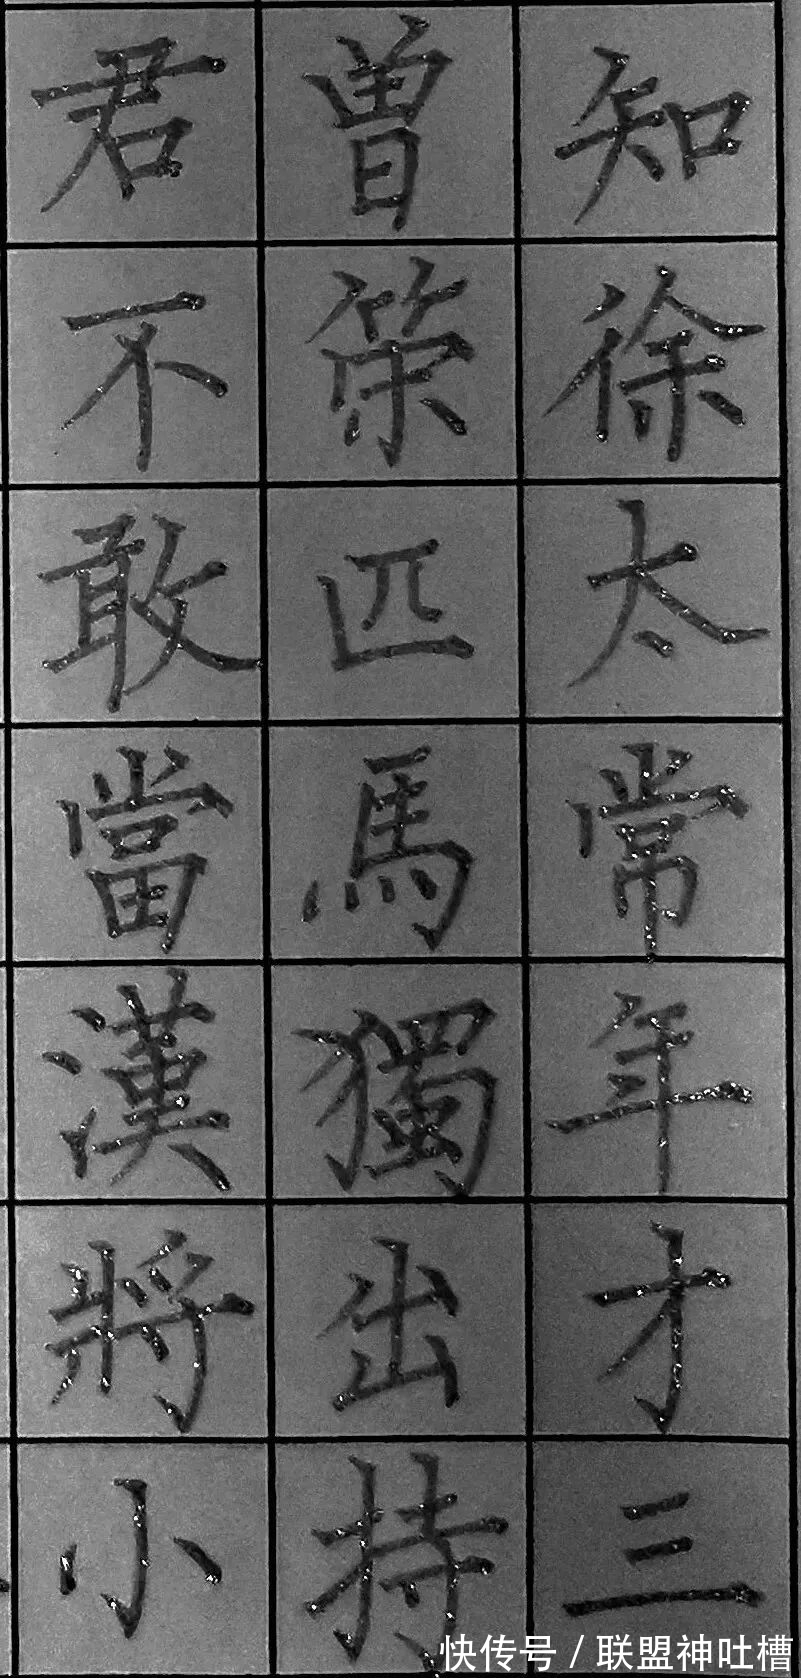 知徐太常年才三
曾策匹馬獨出持
君不敢當漢將小
快传号 / 联盟神吐槽